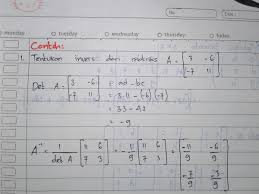 No.
Date
monday tuesday wednesday thursday friday saturday
Contoh:
1. Tentukan invers dari matriks A = [3 -6
-7 11]
Det A = [3 -6
-7 11] = ad - bc
= 3.11 - (-6)(-7)
= 33 - 42
= -9
A⁻¹ = 1/det A [11 6
7 3] = 1/-9 [11 6
7 3] = [-11/9 -6/9
-7/9 -3/9]